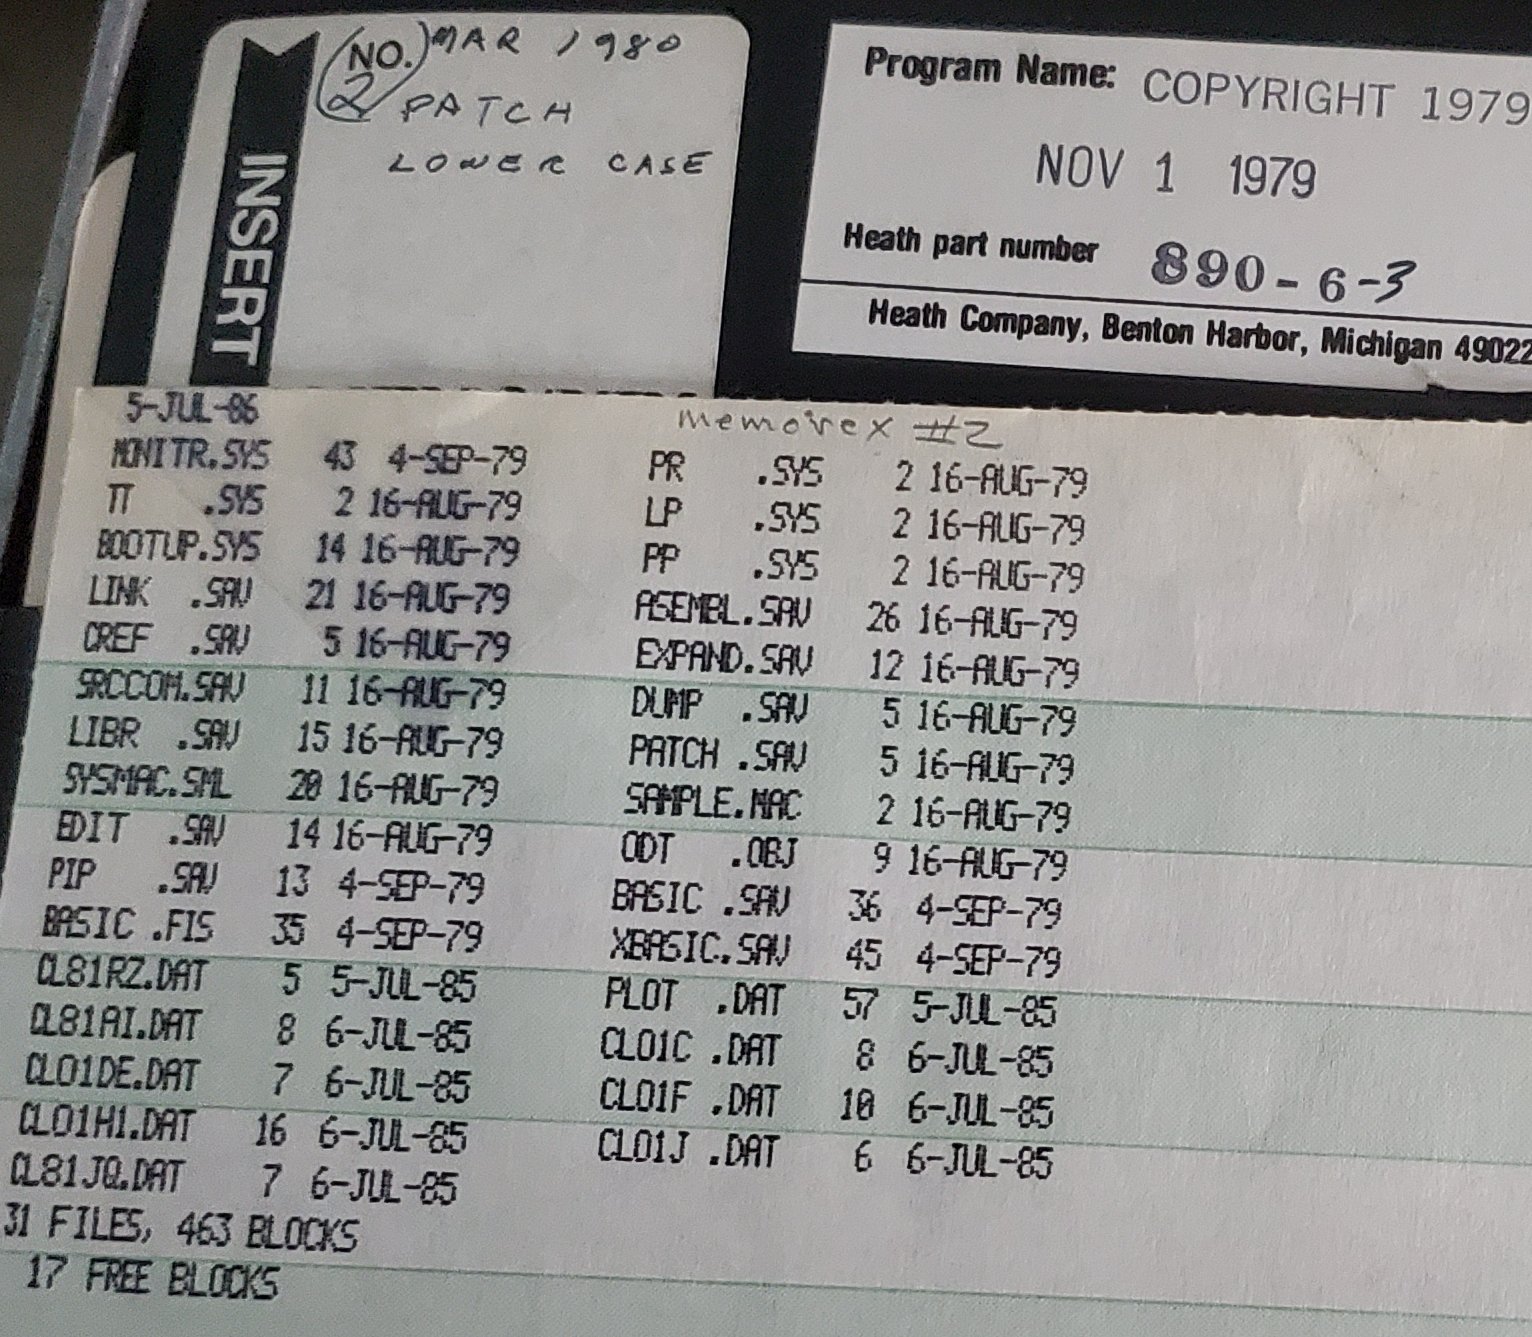 (NO. 2) MAR 1980
PATCH
LOWER CASE
INSERT
Program Name: COPYRIGHT 1979
NOV 1 1979
Heath part number 890-6-3
Heath Company, Benton Harbor, Michigan 49022
5-JUL-86
memorex #2
MONITR.SYS 43 4-SEP-79 PR .SYS 2 16-AUG-79
TT .SYS 2 16-AUG-79 LP .SYS 2 16-AUG-79
BOOTUP.SYS 14 16-AUG-79 PP .SYS 2 16-AUG-79
LINK .SAV 21 16-AUG-79 ASEMBL.SAV 26 16-AUG-79
CREF .SAV 5 16-AUG-79 EXPAND.SAV 12 16-AUG-79
SRCCOM.SAV 11 16-AUG-79 DUMP .SAV 5 16-AUG-79
LIBR .SAV 15 16-AUG-79 PATCH .SAV 5 16-AUG-79
SYSMAC.SML 20 16-AUG-79 SAMPLE.MAC 2 16-AUG-79
EDIT .SAV 14 16-AUG-79 ODT .OBJ 9 16-AUG-79
PIP .SAV 13 4-SEP-79 BASIC .SAV 36 4-SEP-79
BASIC .FIS 35 4-SEP-79 XBASIC.SAV 45 4-SEP-79
CL81RZ.DAT 5 5-JUL-85 PLOT .DAT 57 5-JUL-85
CL81AI.DAT 8 6-JUL-85 CLO1C .DAT 8 6-JUL-85
CLO1DE.DAT 7 6-JUL-85 CLO1F .DAT 10 6-JUL-85
CLO1HI.DAT 16 6-JUL-85 CLO1J .DAT 6 6-JUL-85
CL81JQ.DAT 7 6-JUL-85
31 FILES, 463 BLOCKS
17 FREE BLOCKS